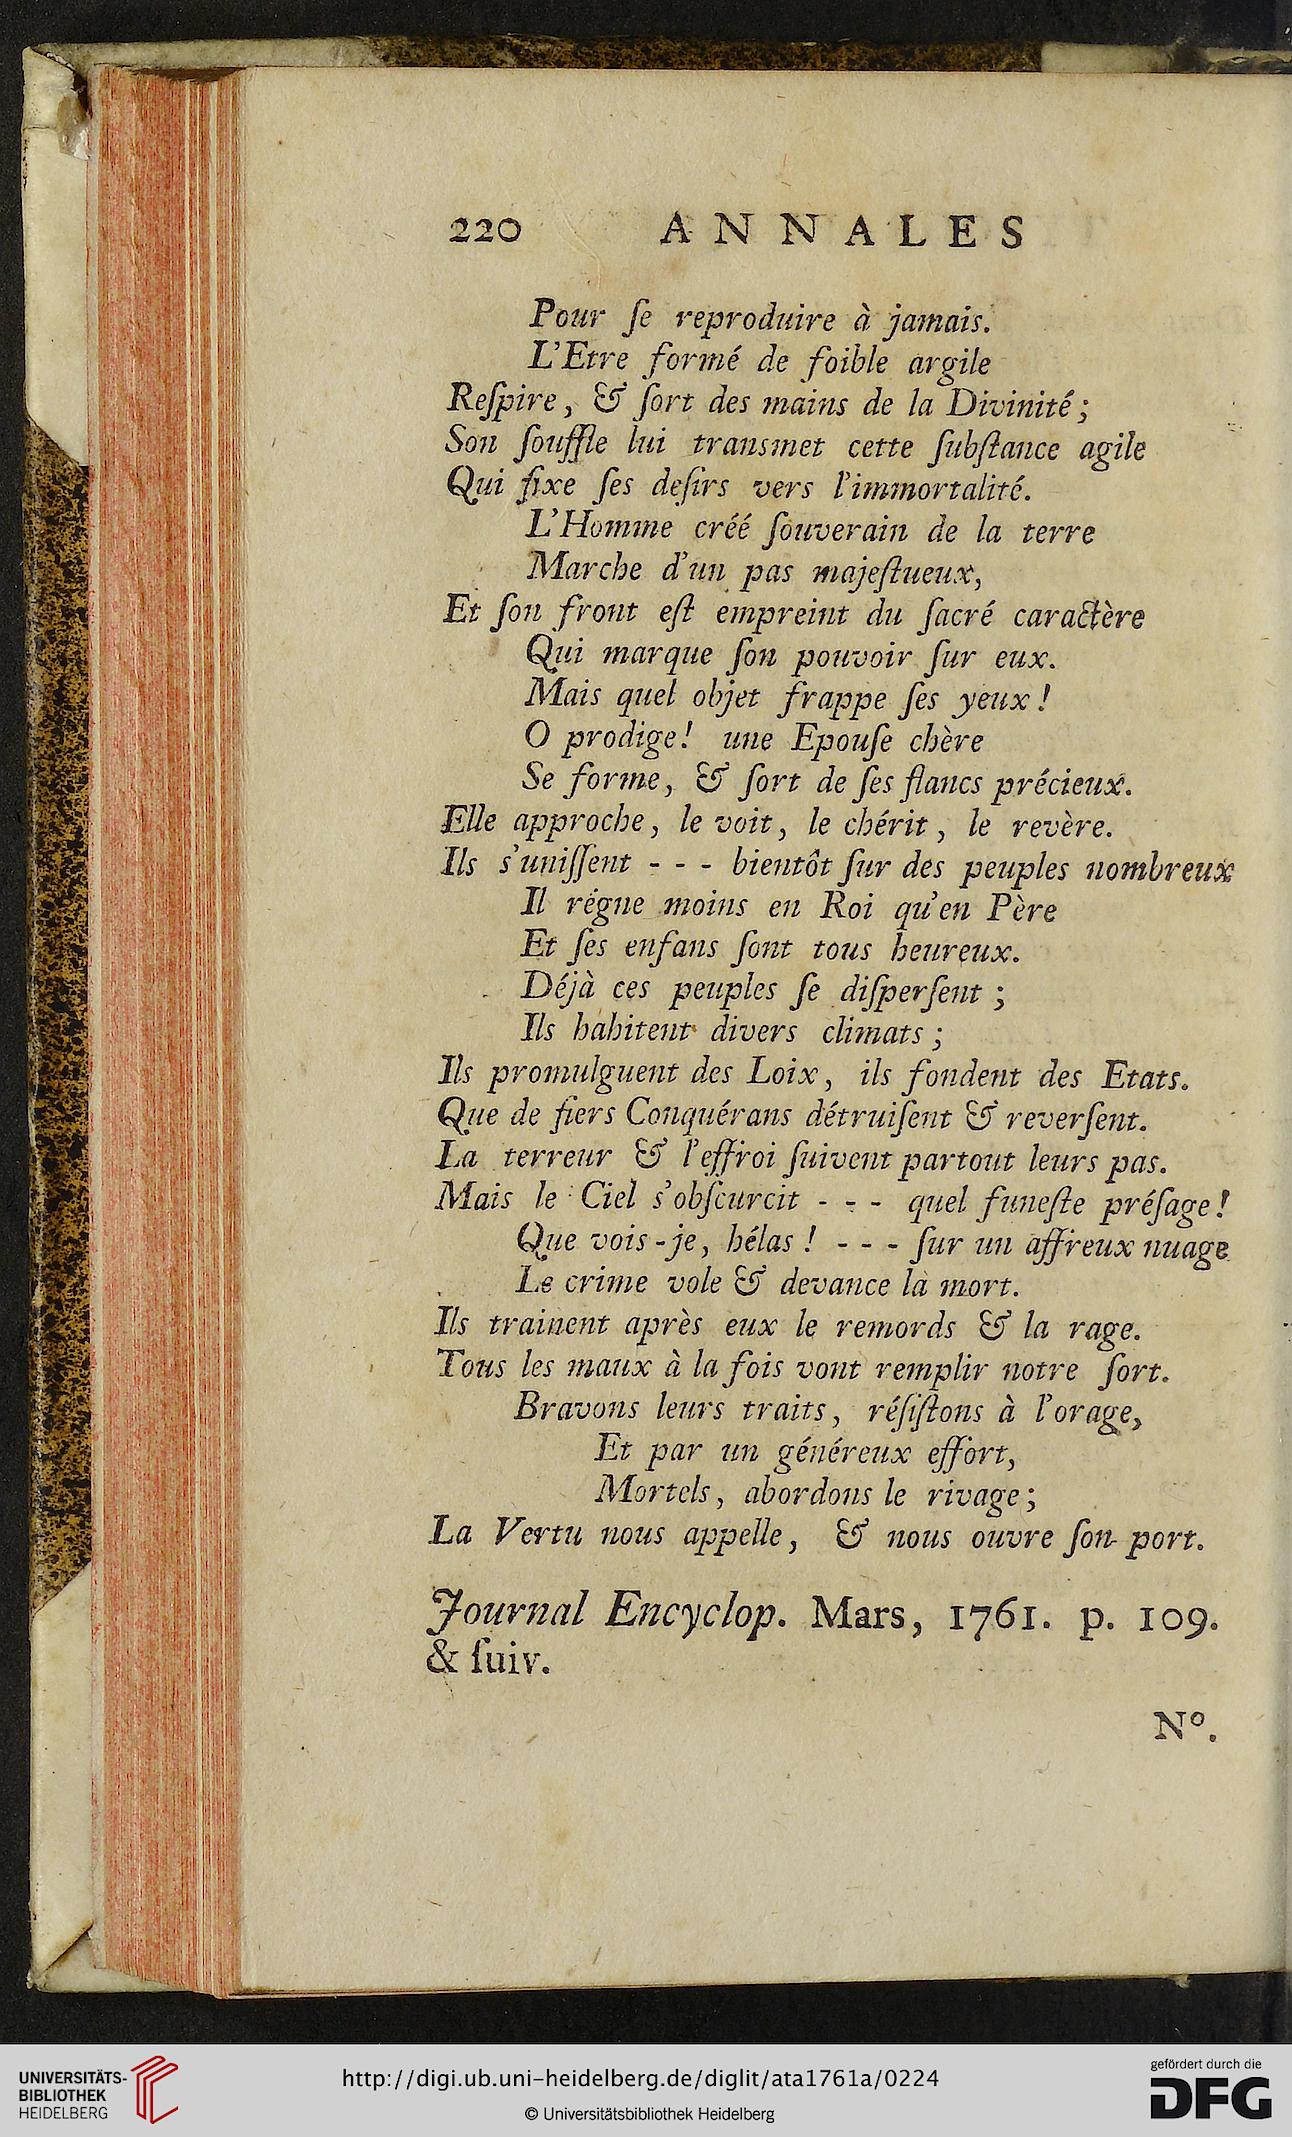 220 ANNALES
Pour ſe reproduire à jamais.
L'Etre formé de foible argile
Reſpire, & ſort des mains de la Divinité;
Son ſouffle lui transmet cette ſubſtance agile
Qui fixe ſes deſirs vers l'immortalité.
L'Homme créé ſouverain de la terre
Marche d'un pas majeſtueux,
Et ſon front eſt empreint du ſacré caractère
Qui marque ſon pouvoir ſur eux.
Mais quel objet frappe ſes yeux!
O prodige! une Epouſe chère
Se forme, & ſort de ſes flancs précieux.
Elle approche, le voit, le chérit, le revère.
Ils s'uniſſent - - - bientôt ſur des peuples nombreux
Il régne moins en Roi qu'en Père
Et ſes enfans ſont tous heureux.
Déjà ces peuples ſe diſperſent;
Ils habitent divers climats;
Ils promulguent des Loix, ils fondent des Etats.
Que de fiers Conquérans détruiſent & reverſent.
La terreur & l'effroi ſuivent partout leurs pas.
Mais le Ciel s'obſcurcit - - - quel funeſte préſage!
Que vois-je, hélas! - - - ſur un affreux nuage
Le crime vole & devance la mort.
Ils trainent après eux le remords & la rage.
Tous les maux à la fois vont remplir notre ſort.
Bravons leurs traits, réſiſtons à l'orage,
Et par un généreux effort,
Mortels, abordons le rivage;
La Vertu nous appelle, & nous ouvre ſon port.
Journal Encyclop. Mars, 1761. p. 109.
& ſuiv.
N°.
UNIVERSITÄTS-
BIBLIOTHEK
HEIDELBERG
http://digi.ub.uni-heidelberg.de/diglit/ata1761a/0224
© Universitätsbibliothek Heidelberg
gefördert durch die
DFG